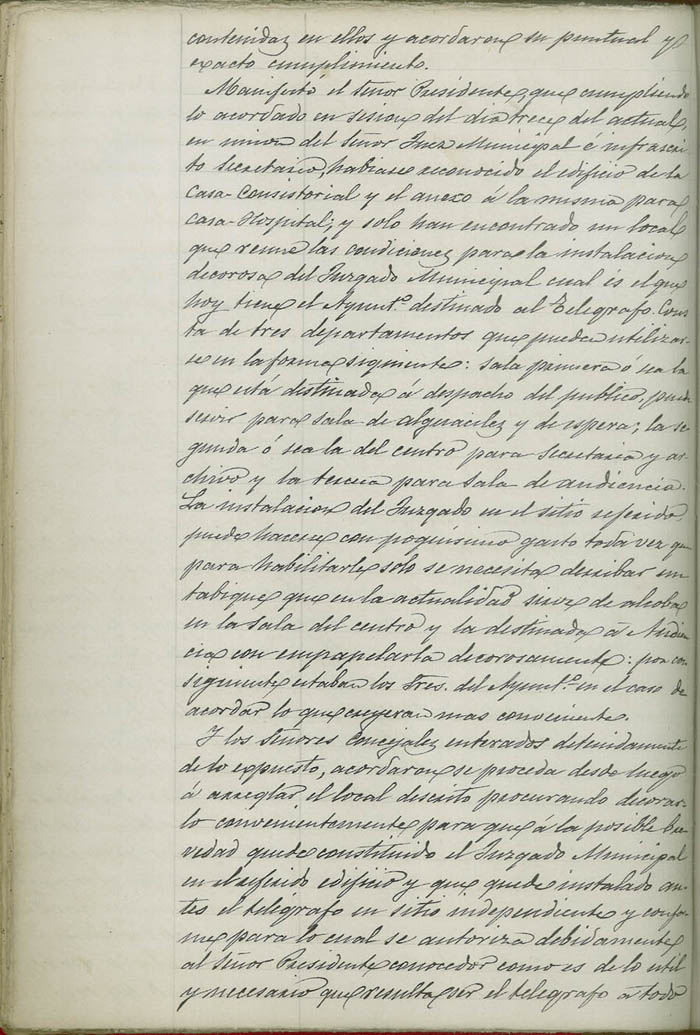 contenidaz en ellos y acordaron su puntual y
exacto cumplimiento.
Manifesto el Señor Presidente, que cumpliendo
lo acordado en sision del dia trece del actual,
en union del Señor Juez Municipal é infrascri
to Secretario, habiase reconocido el edificio de la
Casa-Consistorial y el anexo á la misma para
Casa-Hospital; y solo han encontrado un local
que reune las condicionez para la instalacion
decorosa del Juzgado Municipal cual és el que
hoy tiene el Ayuntº. destinado al Telegrafo. Cons
ta de tres departamentos que pueden utilizar-
se en la forma siguiente: Sala primera ó sea la
que está destinada á despacho del publico, puede
servir para sala de alguacilez y de espera; la se
gunda ó sea la del centro para Secretaria y ar-
chivo y la tercera para Sala de audiencia.
La instalacion del Juzgado en el sitio referido,
puede hacerse con poquisimo gasto toda vez que
para habilitarle solo se necesita derribar un
tabique que en la actualidad sirve de alcoba
en la sala del centro y la destinada á Audien
cia con empapelarla decorosamente: por con
siguiente estaban los Sres. del Ayuntº. en el caso de
acordar lo que creyeran mas conveniente.
Y los Señores Concejalez enterados detenidamente
de lo expuesto, acordaron se proceda desde luego
á arreglar el local descrito procurando decorar-
lo convenientemente para que á la posible bre
vedad quede constituido el Juzgado Municipal
en el referido edificio y que quede instalado an-
tes el telégrafo en sitio independiente y confor
me para lo cual se autoriza debidamente
al Señor Presidente conocedor como es de lo util
y necesario que resulta ser el telegrafo á todo